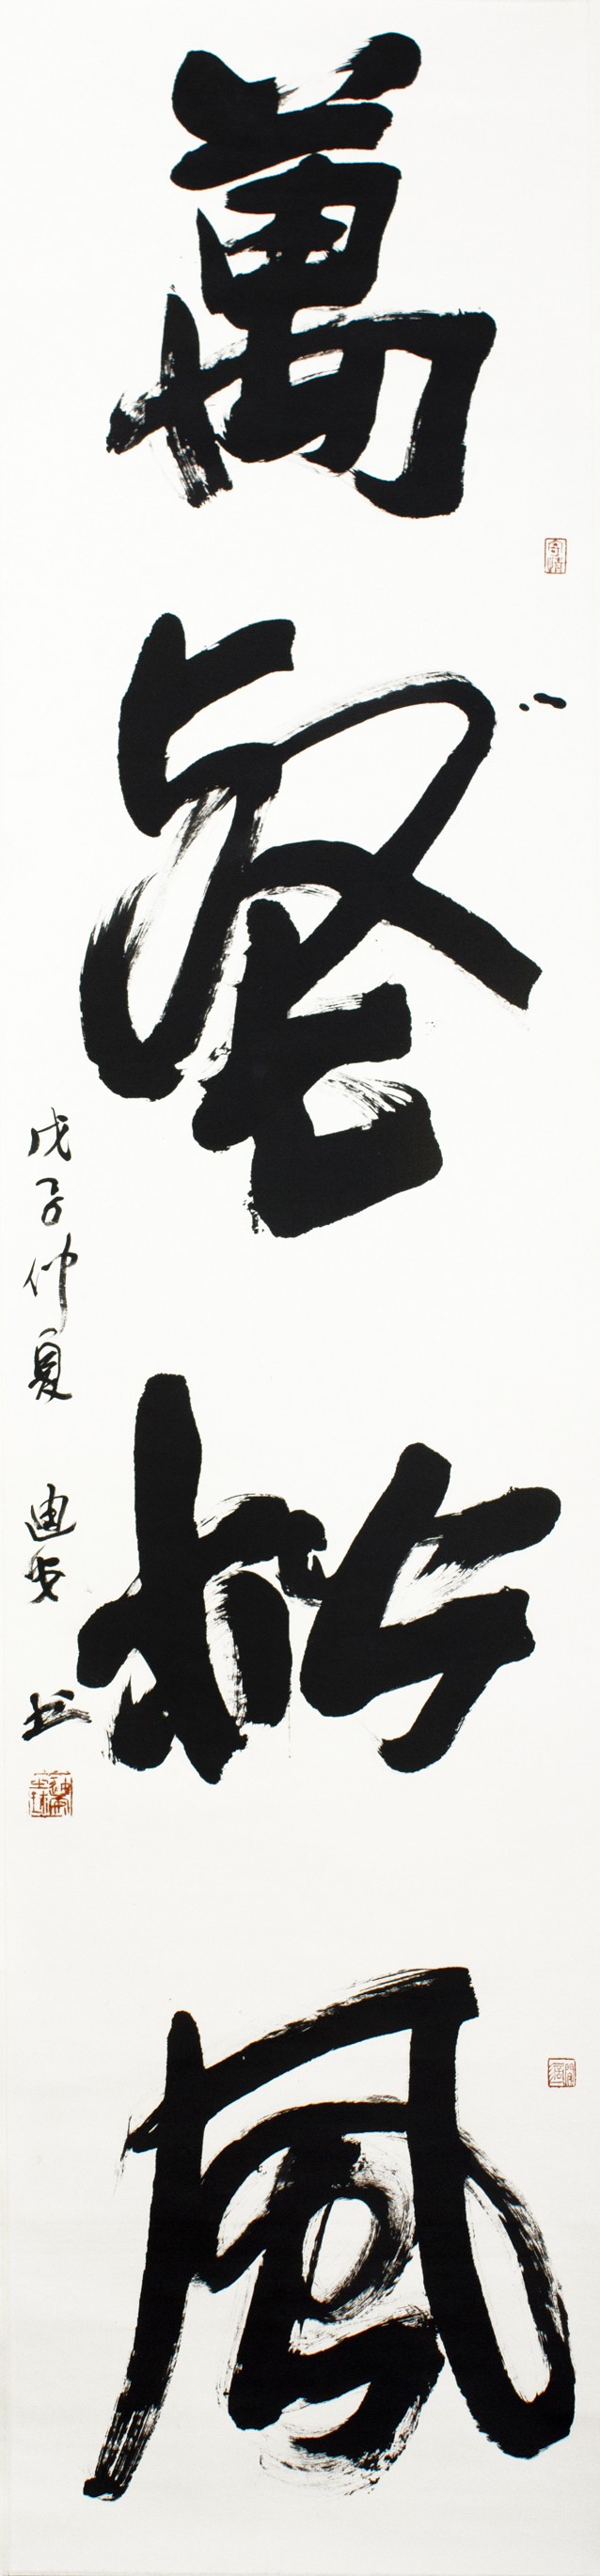 萬壑松風
戊子仲夏 迪安 书